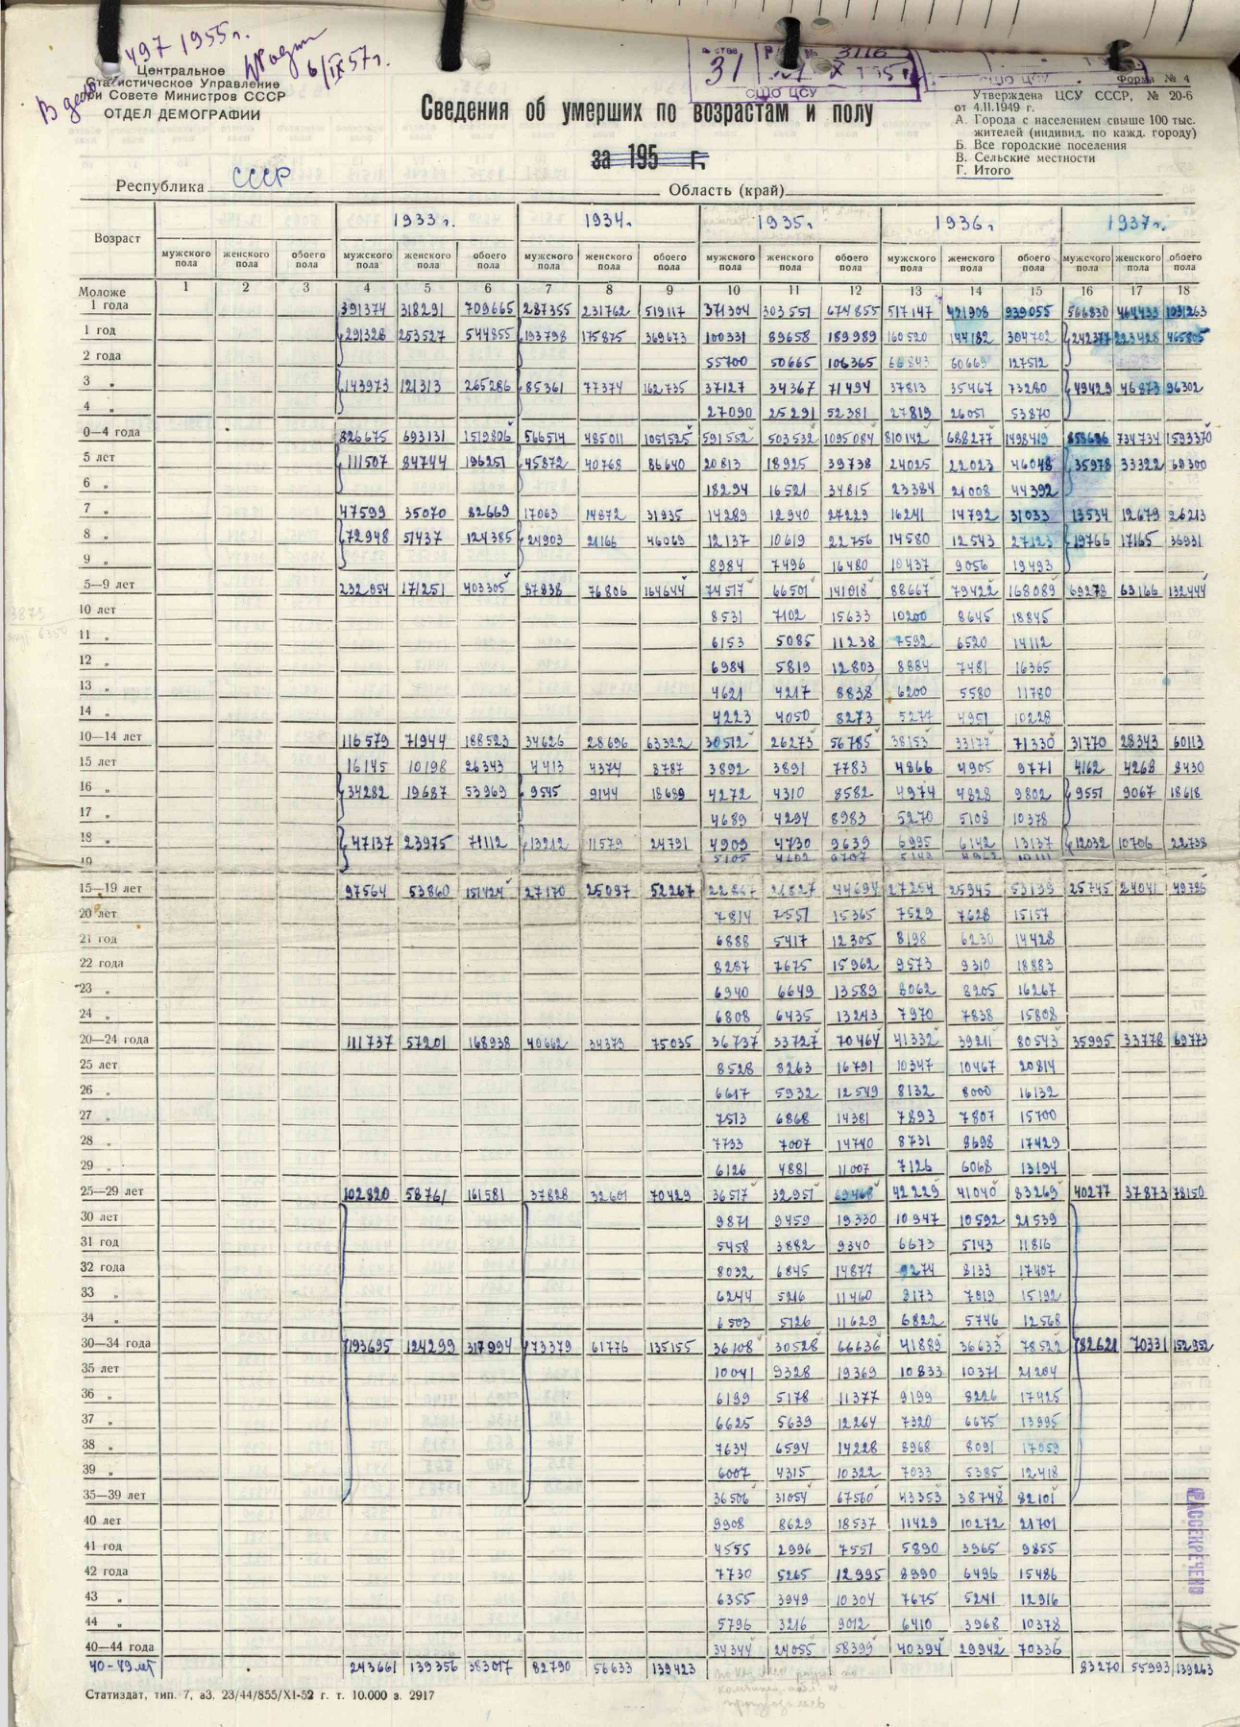 497 1955г.
6/IX 57г.
31
3116
СПО ЦСУ
Центральное
Статистическое Управление
при Совете Министров СССР
ОТДЕЛ ДЕМОГРАФИИ
Форма № 4
Утверждена ЦСУ СССР, № 20-6
от 4.II.1949 г.
А. Города с населением свыше 100 тыс.
жителей (индивид. по кажд. городу)
Б. Все городские поселения
В. Сельские местности
Г. Итого
Сведения об умерших по возрастам и полу
за 195 г.
Республика СССР Область (край)
Возраст 1933г. 1934г. 1935г. 1936г. 1937г.
мужского пола женского пола обоего пола мужского пола женского пола обоего пола мужского пола женского пола обоего пола мужского пола женского пола обоего пола мужского пола женского пола обоего пола мужского пола женского пола обоего пола
1 2 3 4 5 6 7 8 9 10 11 12 13 14 15 16 17 18
Моложе
1 года 391374 318291 709665 287355 231762 519117 371304 303551 674855 517147 421908 939055 566830 464433 1031263
1 год 291328 253527 544855 193798 175875 369673 100331 89658 189989 160520 144182 304702 242377 223428 465805
2 года 55700 50665 106365 66843 60669 127512
3 „ 143973 121313 265286 85361 77374 162735 37127 34367 71494 37813 35467 73280 49429 46873 96302
4 „ 27090 25291 52381 27819 26051 53870
0—4 года 826675 693131 1519806 566514 485011 1051525 591552 503532 1095084 810142 688277 1498419 858636 734734 1593370
5 лет 111507 84744 196251 45872 40768 86640 20813 18925 39738 24025 22023 46048 35978 33322 69300
6 „ 18294 16521 34815 23384 21008 44392
7 „ 47599 35070 82669 17063 14872 31935 14289 12940 27229 16241 14792 31033 13534 12679 26213
8 „ 72948 51437 124385 24903 21166 46069 12137 10619 22756 14580 12543 27123 19766 17165 36931
9 „ 8984 7496 16480 10437 9056 19493
5—9 лет 232054 171251 403305 87838 76806 164644 74517 66501 141018 88667 79422 168089 69278 63166 132444
10 лет 8531 7102 15633 10200 8645 18845
11 „ 6153 5085 11238 7592 6520 14112
12 „ 6984 5819 12803 8884 7481 16365
13 „ 4621 4217 8838 6200 5580 11780
14 „ 4223 4050 8273 5277 4951 10228
10—14 лет 116579 71944 188523 34626 28696 63322 30512 26273 56785 38153 33177 71330 31770 28343 60113
15 лет 16145 10198 26343 4413 4374 8787 3892 3891 7783 4866 4905 9771 4162 4268 8430
16 „ 34282 19687 53969 9545 9144 18689 4272 4310 8582 4974 4828 9802 9551 9067 18618
17 „ 4689 4294 8983 5270 5108 10378
18 „ 47137 23975 71112 13212 11579 24791 4909 4730 9639 6995 6142 13137 12032 10706 22738
19
15—19 лет 97564 53860 151424 27170 25097 52267 22867 21827 44694 27254 25945 53199 25745 24041 49786
20 лет 7814 7551 15365 7529 7628 15157
21 год 6888 5417 12305 8198 6230 14428
22 года 8287 7675 15962 9573 9310 18883
23 „ 6940 6649 13589 8062 8205 16267
24 „ 6808 6435 13243 7970 7838 15808
20—24 года 111737 57201 168938 40662 34373 75035 36737 33727 70464 41332 39211 80543 35995 33778 69773
25 лет 8528 8263 16791 10347 10467 20814
26 „ 6617 5932 12549 8132 8000 16132
27 „ 7513 6868 14381 7893 7807 15700
28 „ 7733 7007 14740 8731 8698 17429
29 „ 6126 4881 11007 7126 6068 13194
25—29 лет 102820 58761 161581 37828 32601 70429 36517 32951 69468 42229 41040 83269 40277 37873 78150
30 лет 9871 9459 19330 10947 10592 21539
31 год 5458 3882 9340 6673 5143 11816
32 года 8032 6845 14877 9274 8133 17407
33 „ 6244 5216 11460 8173 7019 15192
34 „ 6503 5126 11629 6822 5746 12568
30—34 года 193695 124299 317994 73379 61776 135155 36108 30528 66636 41889 36633 78522 82621 70331 152952
35 лет 10041 9328 19369 10833 10371 21204
36 „ 6199 5178 11377 9199 8226 17425
37 „ 6625 5639 12264 7320 6675 13995
38 „ 7634 6594 14228 8968 8091 17059
39 „ 6007 4315 10322 7033 5385 12418
35—39 лет 36506 31054 67560 43353 38748 82101
40 лет 9908 8629 18537 11429 10272 21701
41 год 4555 2996 7551 5890 3965 9855
42 года 7730 5265 12995 8990 6496 15486
43 „ 6355 3949 10304 7675 5241 12916
44 „ 5796 3216 9012 6410 3968 10378
40—44 года 34344 24055 58399 40394 29942 70336
40-49 лет 243661 139356 383017 82790 56633 139423 83270 55993 139263
РАССЕКРЕЧЕНО
Статиздат, тип. 7, аЗ. 23/44/855/XI-52 г. т. 10.000 з. 2917